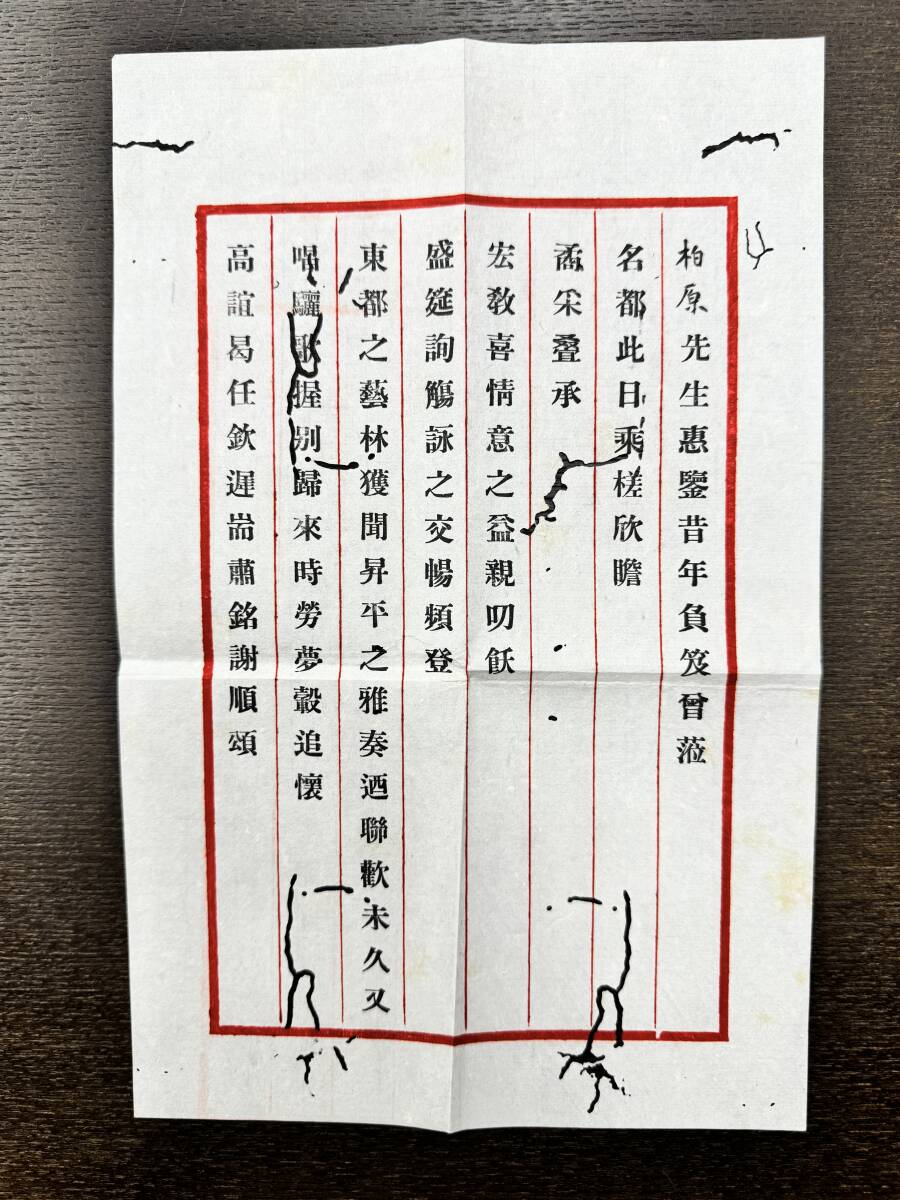 柏原先生惠鑒昔年負笈曾蒞
名都此日乘槎欣瞻
矞采叠承
宏敎喜情意之益親叨飫
盛筵詢觴詠之交暢頻登
東都之藝林獲聞昇平之雅奏迺聯歡未久又
唱驪歌握别歸來時勞夢轂追懷
高誼曷任欽遲耑肅銘謝順頌